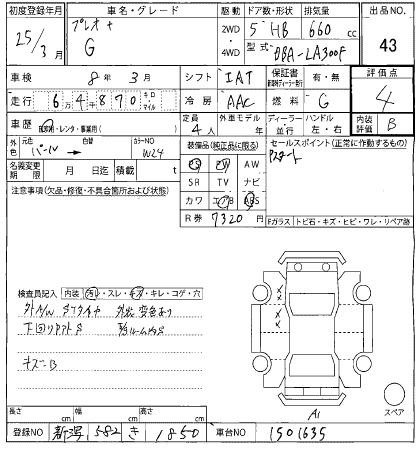 初度登録年月 車名・グレード 駆動 ドア数・形状 排気量 出品NO.
25/3月 プレオ+ G 2WD 4WD 5 HB 660 cc 43
型式 DBA-LA300F
車検 8年 3月 シフト IAT 保証書 有・無 評価点
走行 6万4千870 キロ マイル 冷房 AAC 燃料 G 4
車歴 自家用・レンタ・事業用( ) 定員 4人 外車モデル 年 ディーラー・並行 ハンドル 左・右 内装評価 B
外色 元色 パール 色替 カラーNO W24
装備品(純正品に限る) セールスポイント(正常に作動するもの)
名義変更期限 月 日迄 積載 t
PS PW AW Pスタート
注意事項(欠品・修復・不具合箇所および状態)
SR TV ナビ
カワ エアB ABS
R券 7320円
Fガラス トビ石・キズ・ヒビ・ワレ・リペア跡
検査員記入 内装 汚れ・スレ・キズ・キレ・コゲ・穴
キズ-B
A1
スペア
長さ cm 幅 cm 高さ cm
登録NO 新潟 582 き 1850 車台NO 1501635